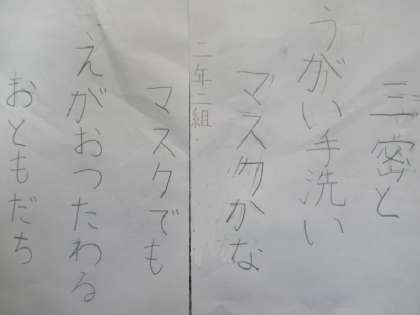 三密と
うがい手洗い
マスクかな
二年二組
マスクでも
えがおつたわる
おともだち